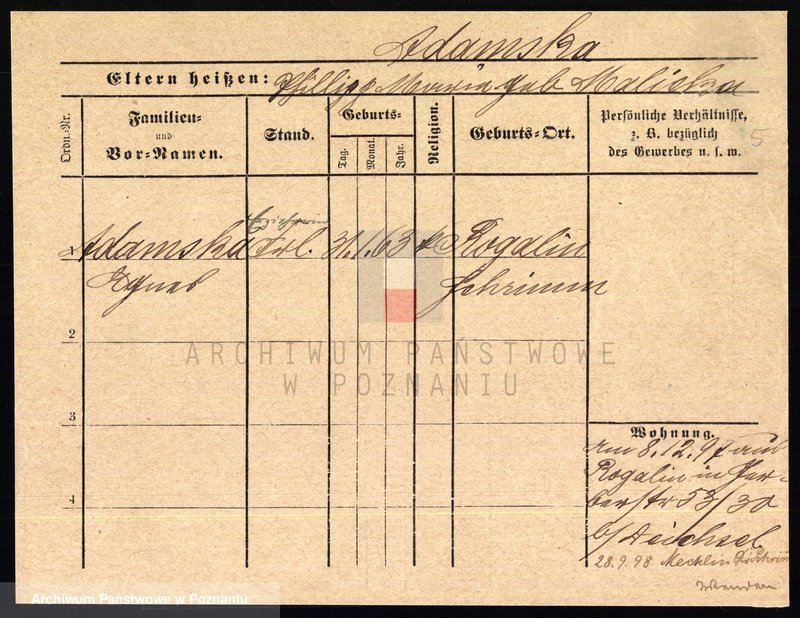 Adamska
Eltern heißen: Phillipp Maria geb Maliska
Ordn.-Nr.
Familien-
und
Vor-Namen.
Stand.
Geburts-
Tag.
Monat.
Jahr.
Religion.
Geburts-Ort.
Persönliche Verhältnisse,
z. B. bezüglich
des Gewerbes u. s. w.
5
Erzieherin
1 Adamska Frl. 31. 1. 63 k Rogalin
Agnes Schrimm
2
ARCHIWUM PAŃSTWOWE
W POZNANIU
3
Wohnung.
am 8.12.97 aus
Rogalin in Ger-
berstr 53/30
b/ Deichsel
28.9.98 Mechlin Kr Schrimm
4
Archiwum Państwowe w Poznaniu